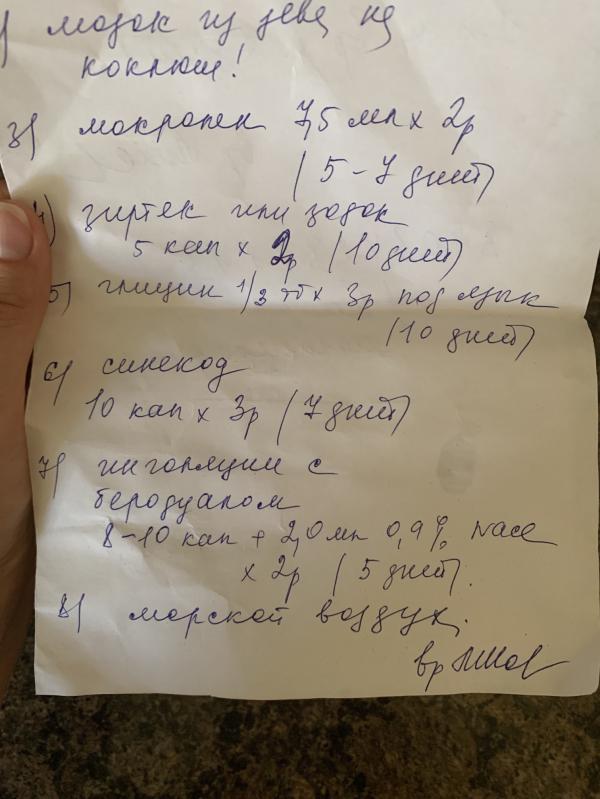 ) мазок из зева на
коклюш!
3) макропен 7,5 мл х 2р
(5-7 дней)
4) зиртек или зодак
5 кап х 2р (10 дней)
5) глицин 1/3 тб х 3р под язык
(10 дней)
6) синекод
10 кап х 3р (7 дней)
7) ингаляции с
беродуалом
8-10 кап + 2,0 мл 0,9% NaCl
х 2р (5 дней).
8) морской воздух.
вр